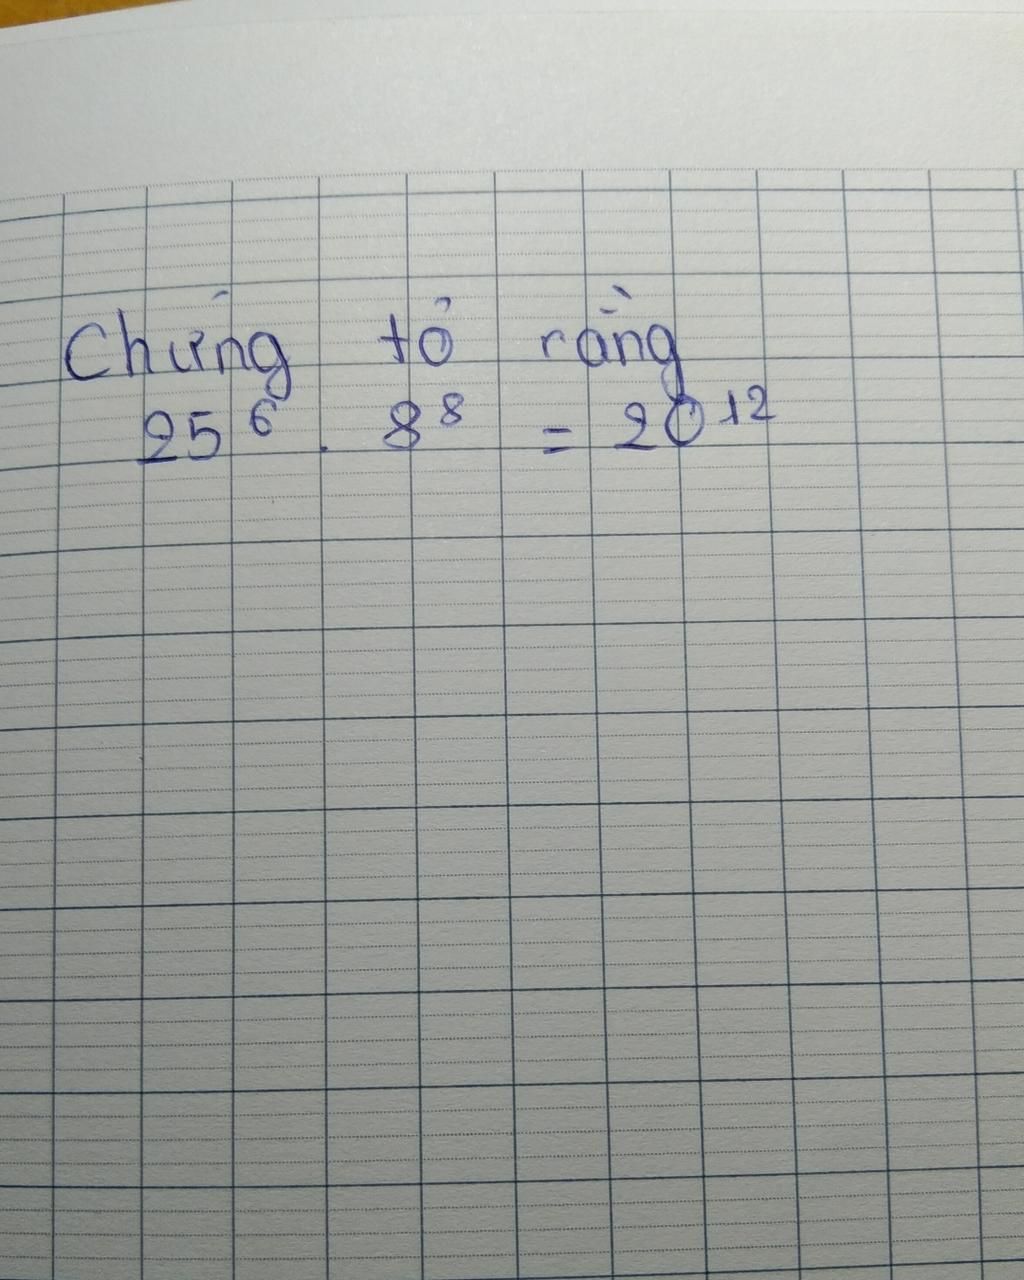 Chứng tỏ rằng
25⁶ . 8⁸ = 20¹²